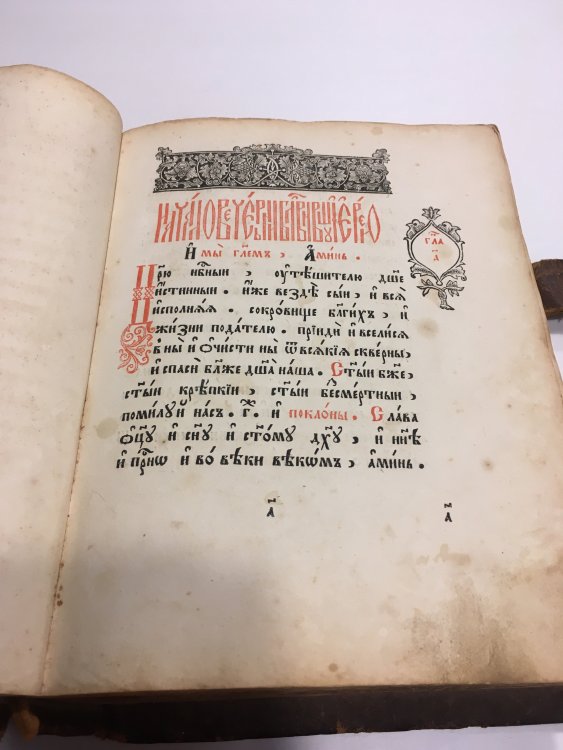 И҆ мы̀ гл҃емъ, А҆ми́нь.
гла҃
а҃
Цр҃ю нбⷭ҇ныи, ᲂу҆тѣ́шителю дш҃е
и҆́стинныи. и҆́же вездѣ̀ сы́и, и҆ всѧ̀
и҆сполнѧ́ѧ. сокро́вище блг҃и́хъ, и҆
жи́зни пода́телю. прїидѝ и҆ всели́сѧ
в ны̀ и҆ ѡ҆чи́сти ны̀ ѿ всѧ́кїѧ скве́рны,
и҆ спасѝ бл҃же дш҃а̀ на́ша. Ст҃ы́и бж҃е
ст҃ы́и крѣ́пкїи, ст҃ы́и бесме́ртныи,
поми́луй на́съ. г҃. и҆ покло́ны. Сла́ва
ѻ҆ц҃у̀ и҆ сн҃у и҆ ст҃о́му дх҃у, и҆ нн҃ѣ
и҆ прⷭ҇нѡ и҆ во́ вѣки вѣкѡ́мъ, а҆ми́нь.
а҃ а҃